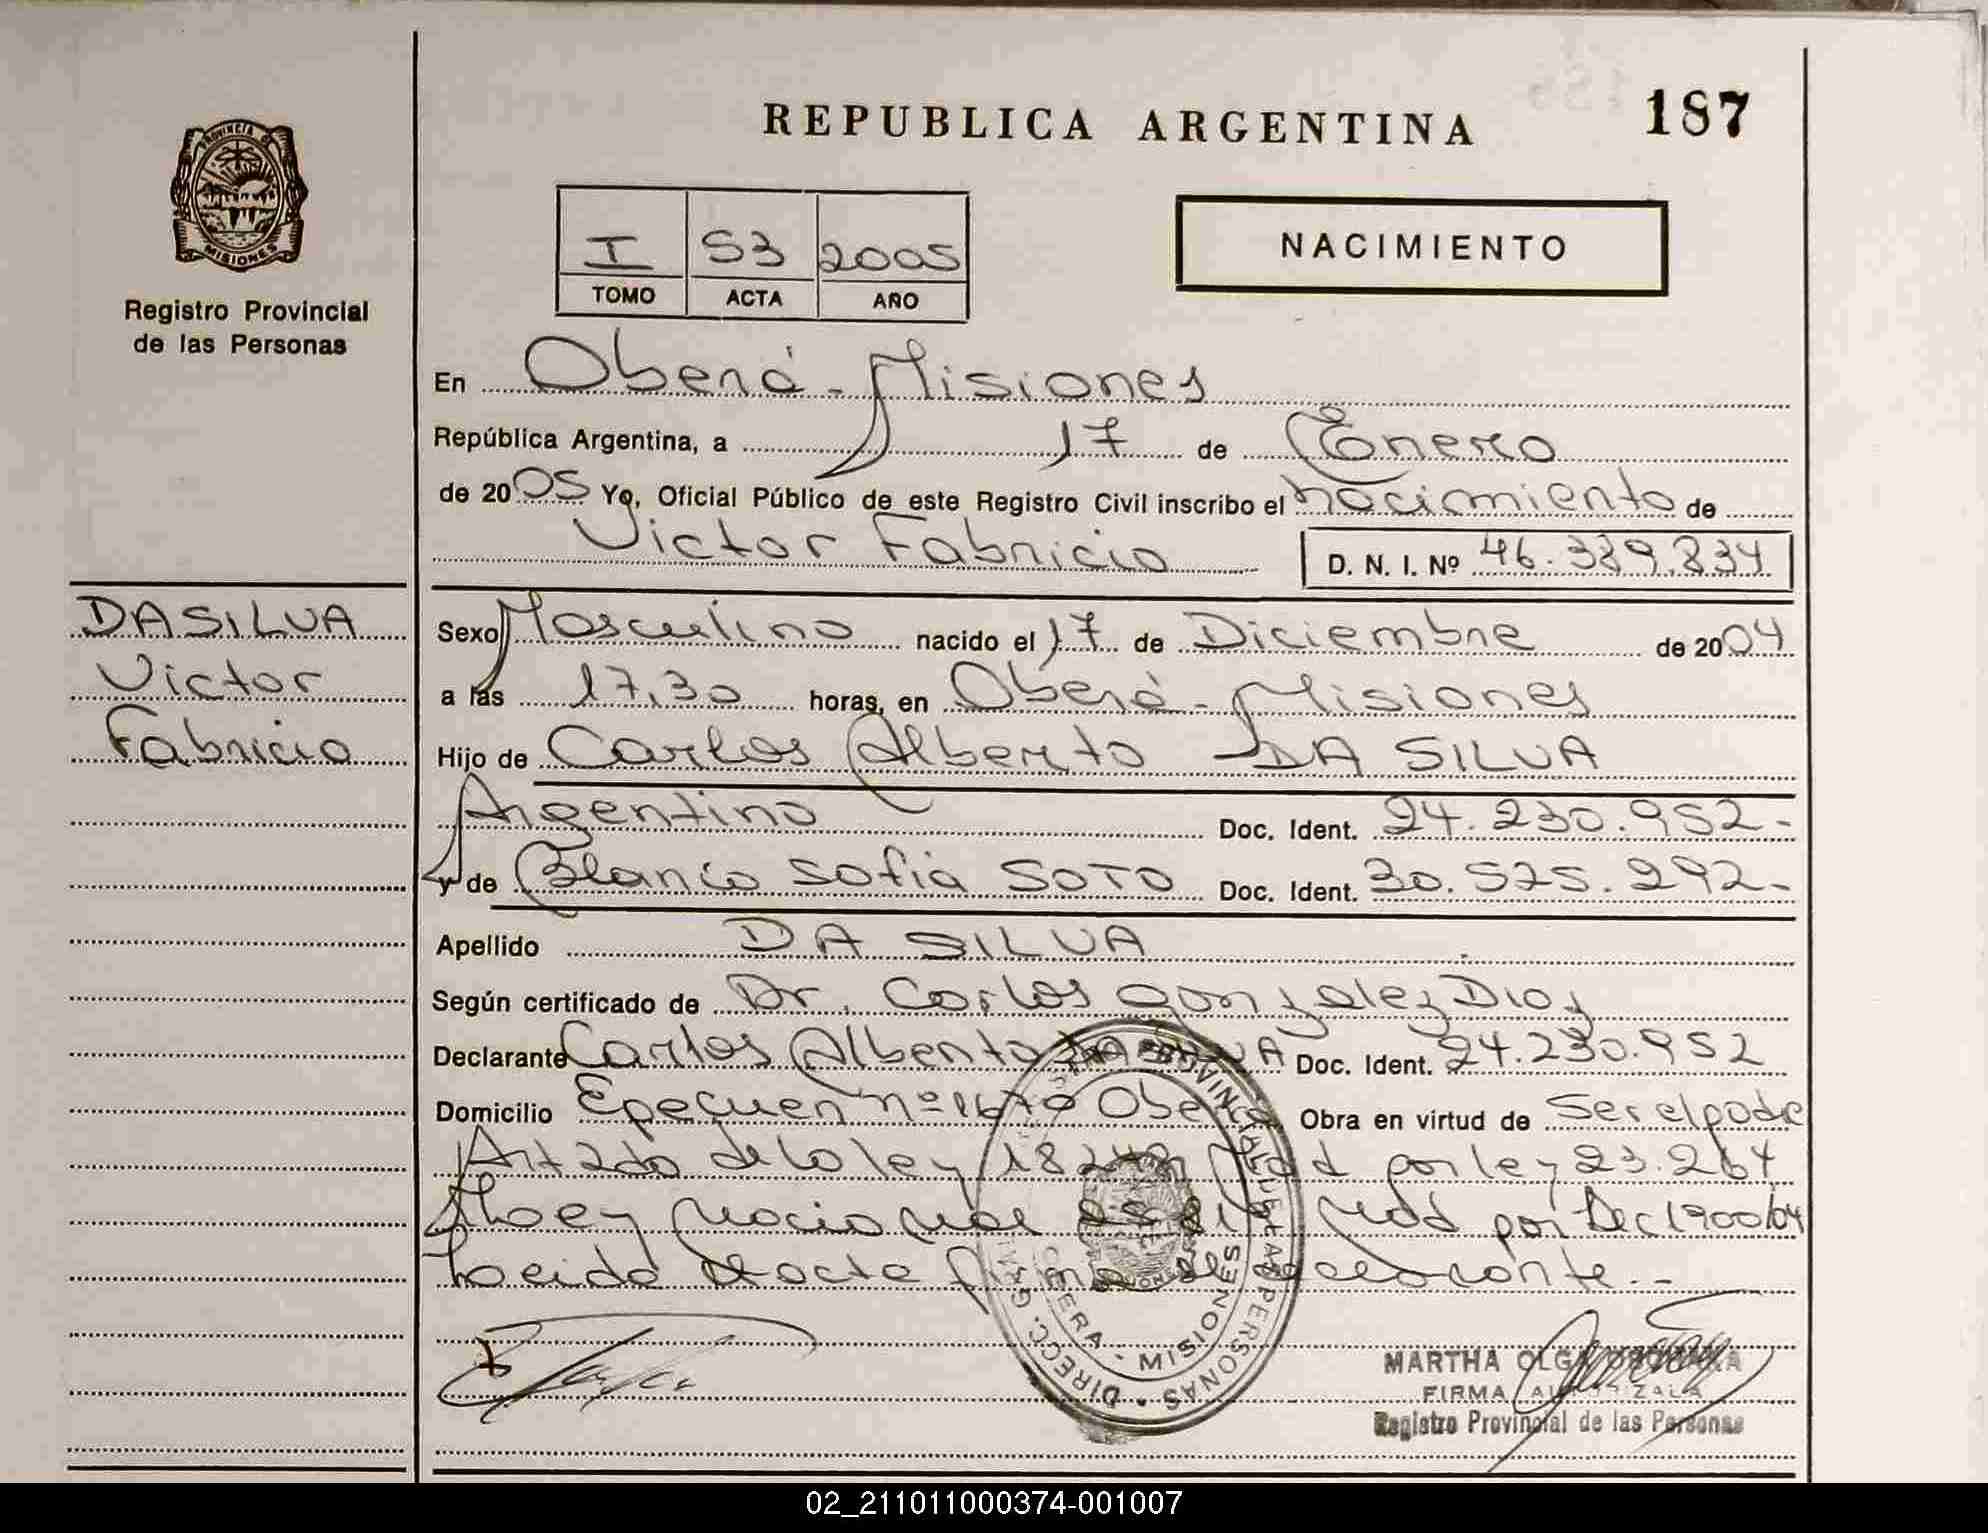 REPUBLICA ARGENTINA
187
PROVINCIA DE
MISIONES
Registro Provincial
de las Personas
I 53 2005
TOMO ACTA AÑO
NACIMIENTO
En Oberá - Misiones
República Argentina, a 17 de Enero
de 2005 Yo, Oficial Público de este Registro Civil inscribo el nacimiento de
Victor Fabricio D. N. I. Nº 46.389.834
DA SILVA
Victor
Fabricio
Sexo Masculino nacido el 17 de Diciembre de 2004
a las 17,30 horas, en Oberá - Misiones
Hijo de Carlos Alberto DA SILVA
Argentino Doc. Ident. 24.230.952-
y de Blanca Sofia SOTO Doc. Ident. 30.575.292-
Apellido DA SILVA
Según certificado de Dr. Carlos Gonzalez Dios
Declarante Carlos Alberto DA SILVA Doc. Ident. 24.230.952
Domicilio Epecuen nº 1670 Oberá Obra en virtud de Ser el padre
Art 2do de la ley 18248 Mod por ley 23.264
la ey Mod por Dec 1900/04
Leida el acta firma el declarante.-
DIRECC. GRAL. PROVINCIAL DE LAS PERSONAS
MISIONES
MARTHA OLGA
FIRMA AUTORIZADA
Registro Provincial de las Personas
02_211011000374-001007